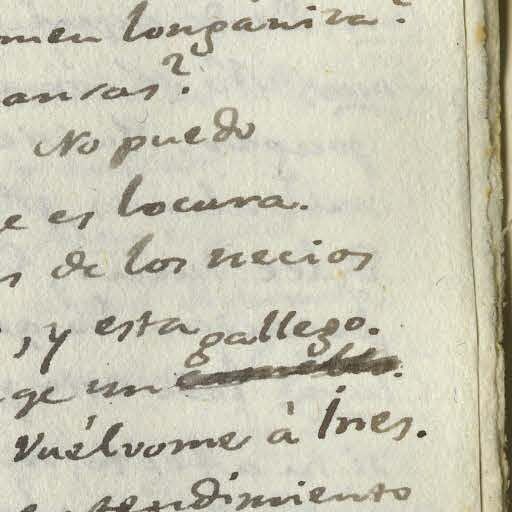 men longaniza?
ansas?
No puedo
e es locura.
s de los necios
, y esta
gallego.
ge un
Vuélvome à Ines.
tendimiento